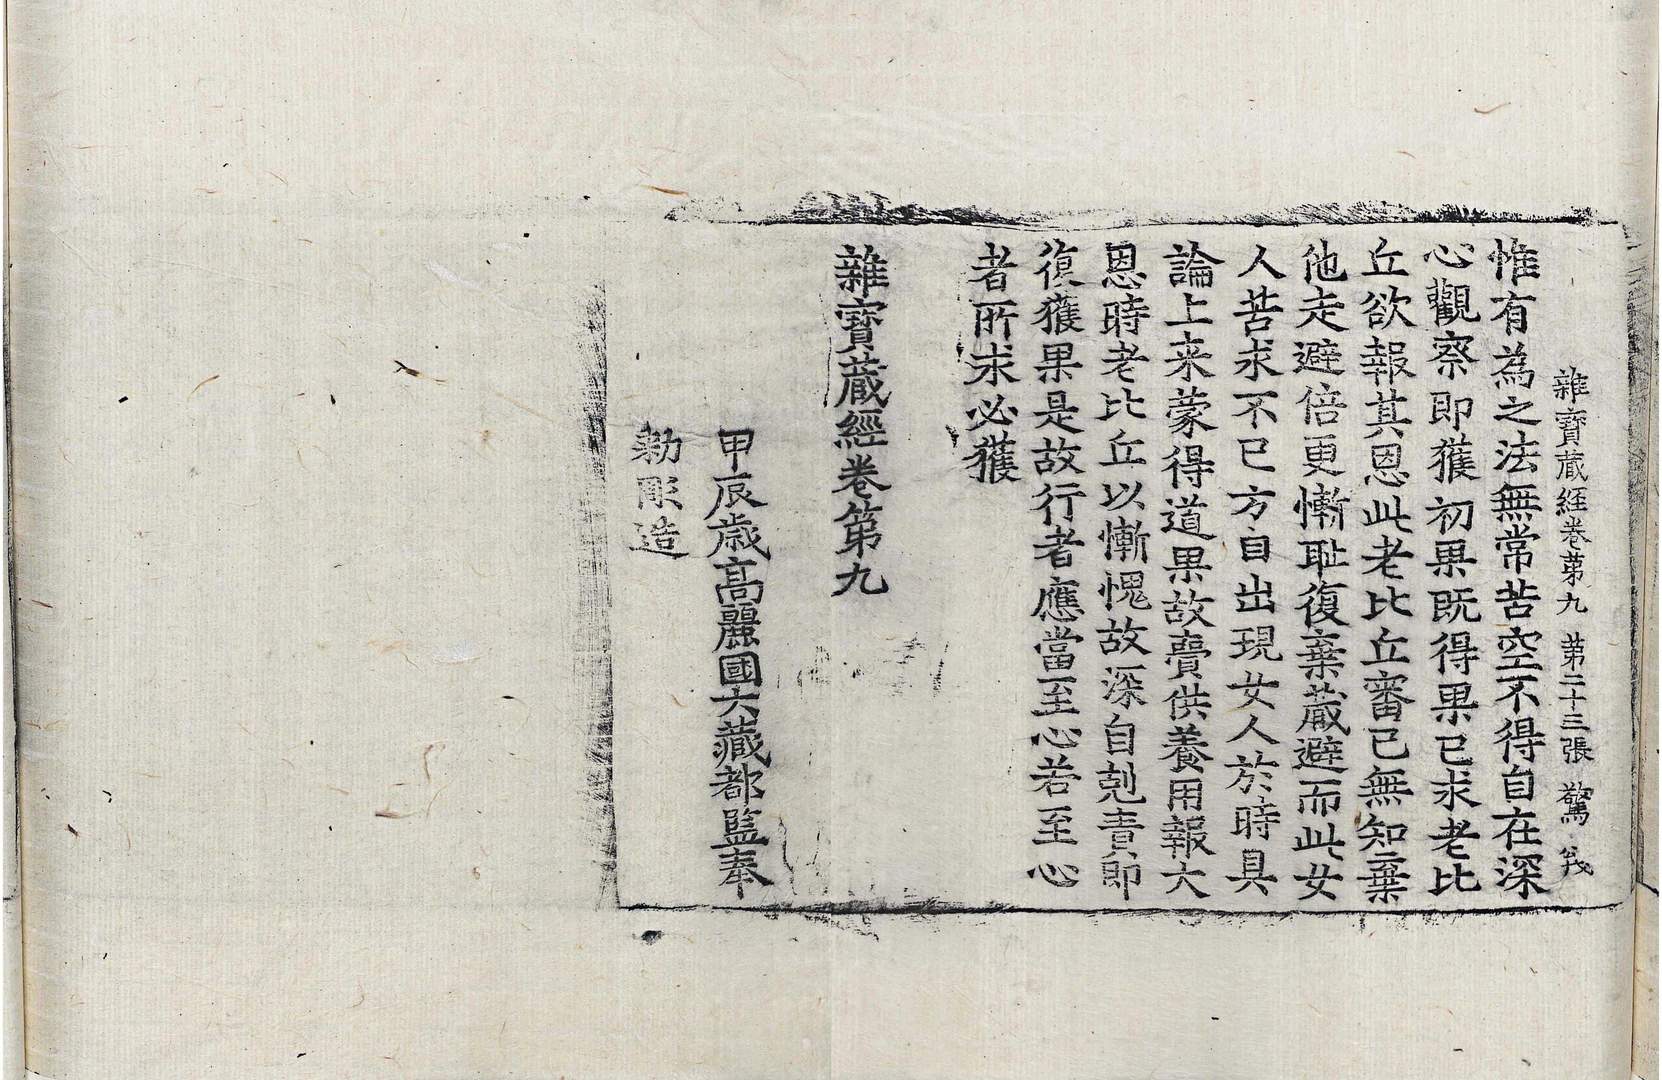 雜寶蔵経卷苐九 苐二十三張 驚
惟有為之法無常苦空不得自在深
心觀察即獲初果既得果已求老比
丘欲報其恩此老比丘審已無知棄
他走避倍更慚耻復棄蔵避而此女
人苦求不已方自出現女人於時具
論上来蒙得道果故賷供養用報大
恩時老比丘以慚愧故深自剋責即
復獲果是故行者應當至心若至心
者所求必獲
雜寶蔵經卷第九
甲辰歳高麗國大藏都監奉
勅彫造